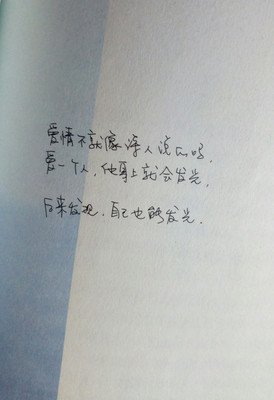 爱情不就像深人说的吗,
爱一个人,他身上就会发光,
后来发现,自己也能发光.